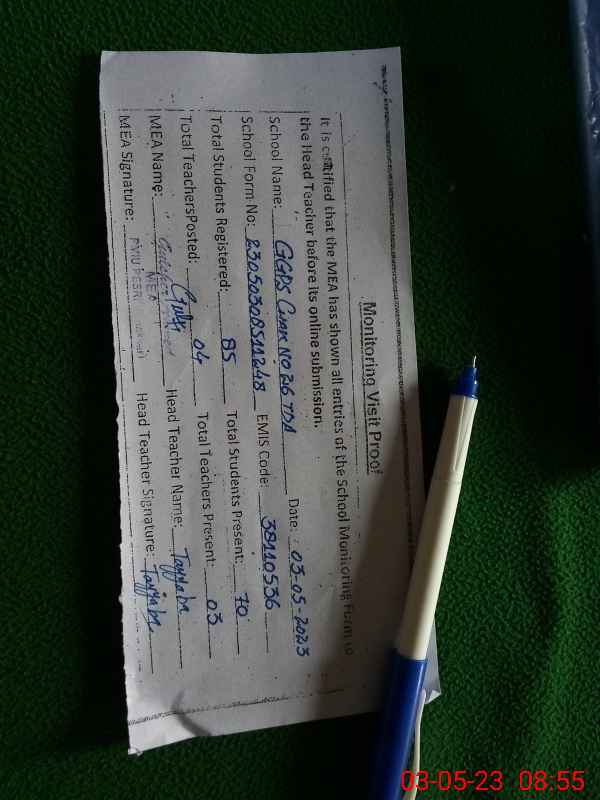 Monitoring Visit Proof
It is certified that the MEA has shown all entries of the School Monitoring Form to
the Head Teacher before its online submission.
School Name: GGPS Chak NO 26 TDA Date: 03-05-2023
School Form No: EMIS Code: 38110536
Total Students Registered: 85 Total Students Present: 70
Total TeachersPosted: 04 Total Teachers Present: 03
MEA Name: Head Teacher Name: Tayyaba
MEA Signature: Head Teacher Signature: Tayyaba
MEA
03-05-23 08:55